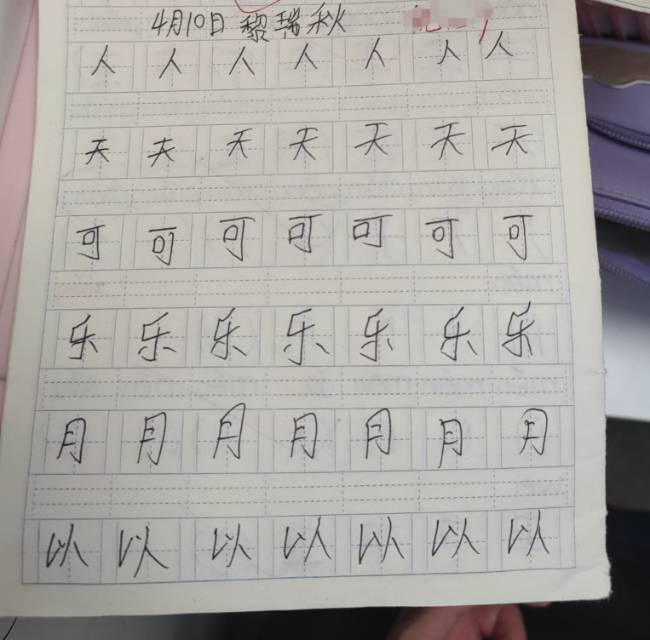 4月10日 黎瑞秋
人 人 人 人 人 人 人
天 天 天 天 天 天 天
可 可 可 可 可 可 可
乐 乐 乐 乐 乐 乐 乐
月 月 月 月 月 月 月
以 以 以 以 以 以 以